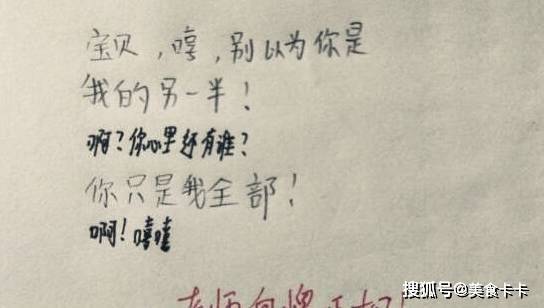 宝贝，嘻，别以为你是
我的另一半！
啊？你心里还有谁？
你只是我全部！
啊！嘻嘻
搜狐号@美食卡卡